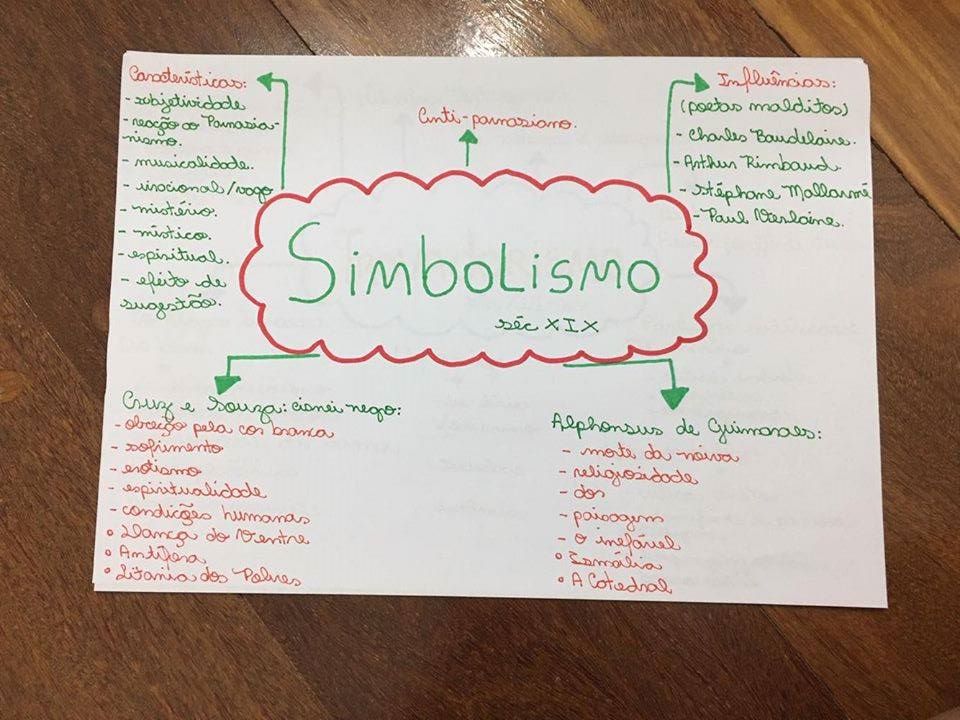 Características:
- subjetividade
- reação ao Parnasia-
nismo.
- musicalidade.
- irracional/vago
- mistério.
- místico.
- espiritual.
- efeito de
sugestão.
Anti-parnasiano.
Influências:
(poetas malditos)
- Charles Baudelaire.
- Arthur Rimbaud.
- Stéphane Mallarmé
- Paul Verlaine.
SimboLismo
séc XIX
Cruz e Souza: cisnei nego:
- obceção pela cor branca
- sofrimento
- erotismo
- espiritualidade
- condicções humanas
° Dança do Ventre
° Antífera
° Litania dos Pobres
Alphonsus de Guimaraes:
- morte da noiva
- religiosidade
- dor
- paisagem
- o inefável
° Ismália
° A Catedral